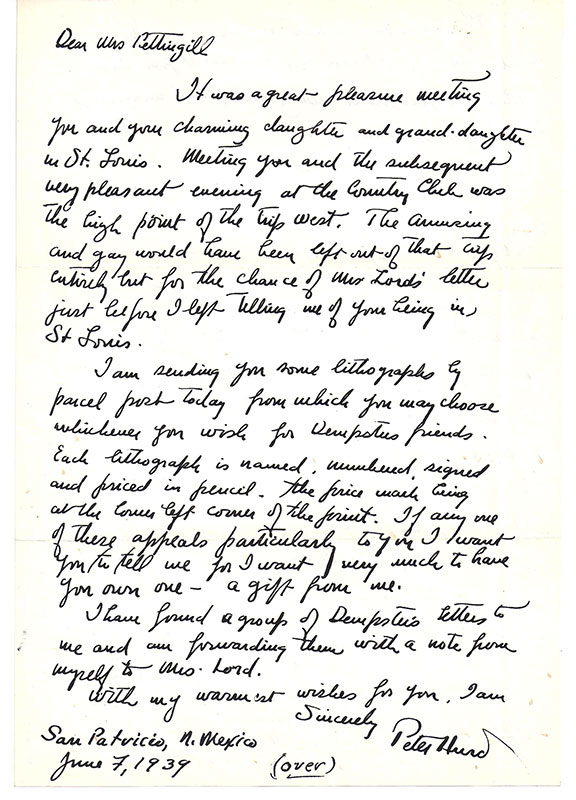 Dear Mrs Pettingill
It was a great pleasure meeting
you and your charming daughter and grand-daughter
in St. Louis. Meeting you and the subsequent
very pleasant evening at the Country Club was
the high point of the trip west. The amusing
and gay would have been left out of that trip
entirely but for the chance of Mrs Lord's letter
just before I left telling me of your being in
St Louis.
I am sending you some lithographs by
parcel post today from which you may choose
whichever you wish for Dempsters friends.
Each lithograph is named, numbered, signed
and priced in pencil. the price mark being
at the lower left corner of the print. If any one
of these appeals particularly to you I want
you to tell me for I want very much to have
you own one — a gift from me.
I have found a group of Dempster's letters to
me and am forwarding them with a note from
myself to Mrs. Lord.
With my warmest wishes for you, I am
Sincerely
Peter Hurd
San Patricio, N. Mexico
June 7, 1939
(over)